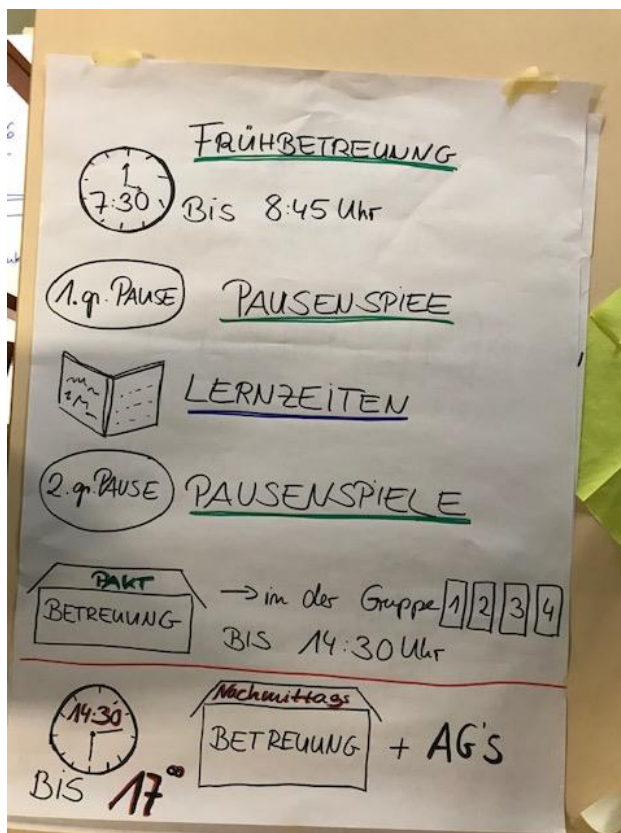 FRÜHBETREUUNG
7:30 BiS 8:45 Uhr
1. gr. PAUSE PAUSENSPIEE
LERNZEiTEN
2. gr. PAUSE PAUSENSPIELE
PAKT
BETREUUNG → in der Gruppe 1 2 3 4
BIS 14:30 Uhr
14:30 Nachmittags
BETREUUNG + AG'S
BiS 17°°